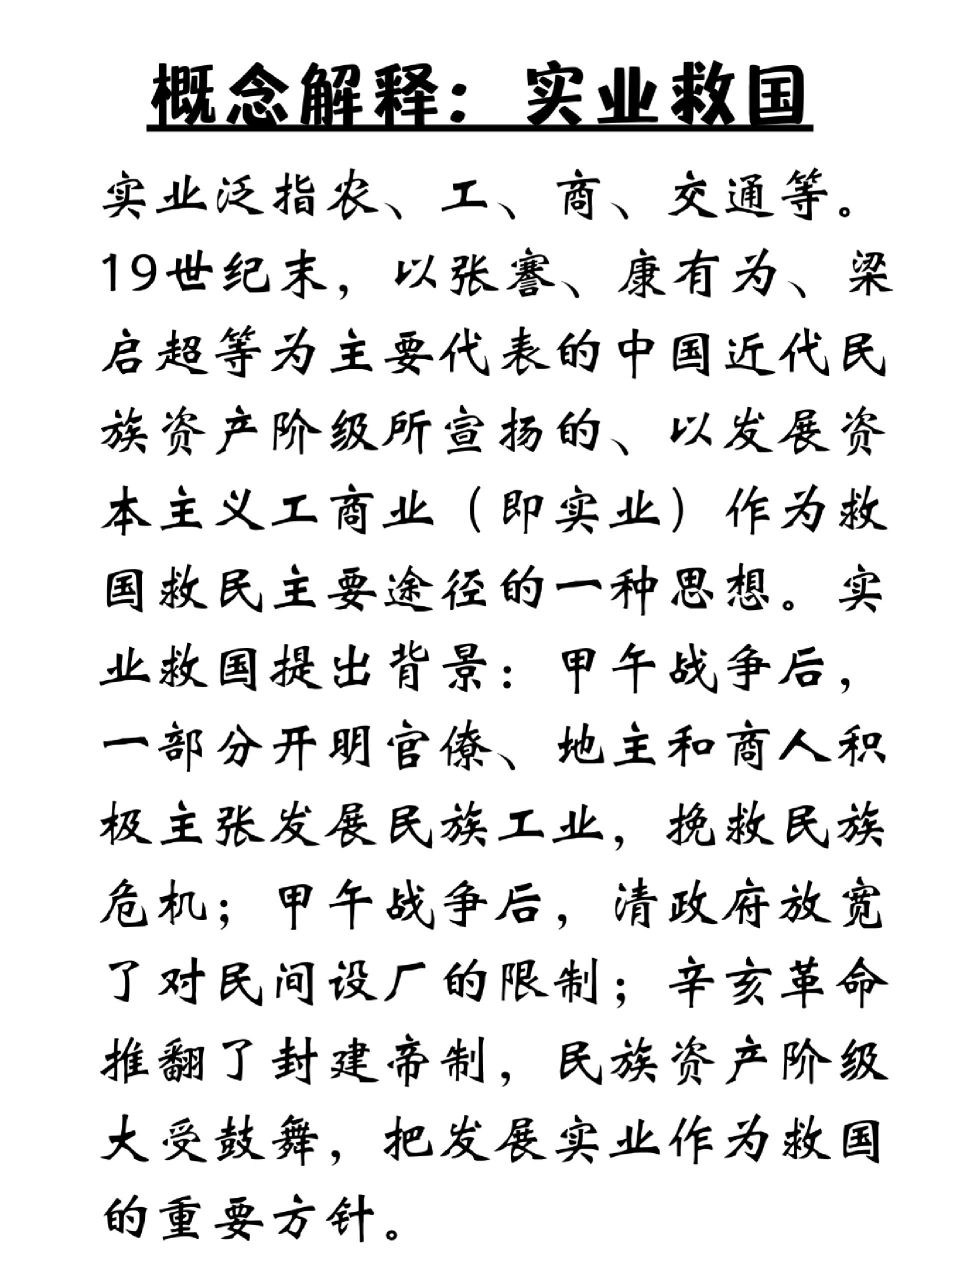 概念解释：实业救国
实业泛指农、工、商、交通等。
19世纪末，以张謇、康有为、梁
启超等为主要代表的中国近代民
族资产阶级所宣扬的、以发展资
本主义工商业（即实业）作为救
国救民主要途径的一种思想。实
业救国提出背景：甲午战争后，
一部分开明官僚、地主和商人积
极主张发展民族工业，挽救民族
危机；甲午战争后，清政府放宽
了对民间设厂的限制；辛亥革命
推翻了封建帝制，民族资产阶级
大受鼓舞，把发展实业作为救国
的重要方针。